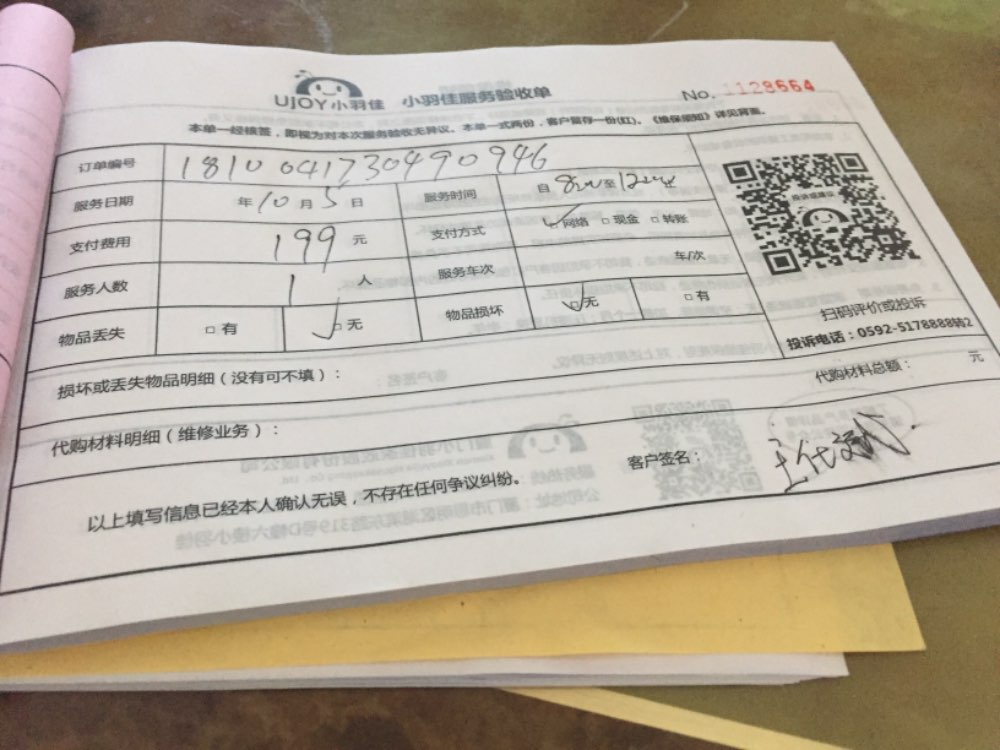 UJOY小羽佳 小羽佳服务验收单 No. 1128664
本单一经核签，即视为对本次服务验收无异议。本单一式两份，客户留存一份(红)。《维保须知》详见背面。
订单编号 1810041730490946
服务日期 年10月5日 服务时间 自8:00至12:00止
支付费用 199元 支付方式 网络 现金 转账
服务人数 1人 服务车次 车/次
物品丢失 有 无 物品损坏 无 有
扫码评价或投诉
投诉电话：0592-5178888转2
损坏或丢失物品明细（没有可不填）：
代购材料明细（维修业务）： 代购材料总额： 元
以上填写信息已经本人确认无误，不存在任何争议纠纷。 客户签名：